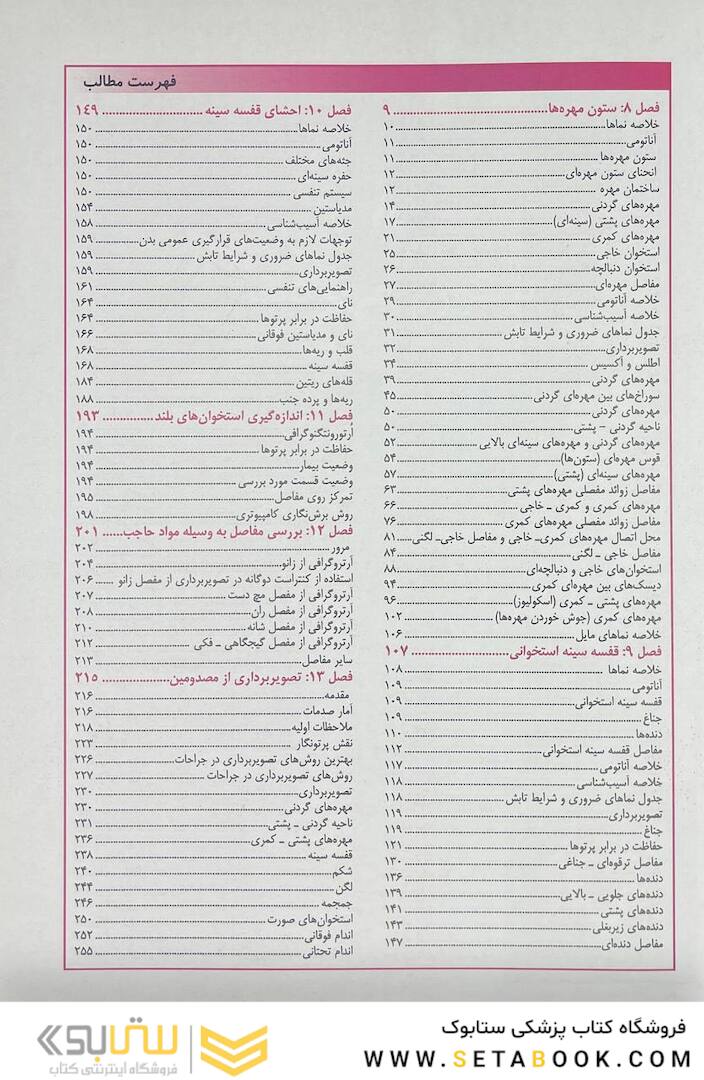 فهرست مطالب
فصل ۸: ستون مهره‌ها ... ۹
خلاصه نماها ... ۱۰
آناتومی ... ۱۱
ستون مهره‌ها ... ۱۱
انحنای ستون مهره‌ای ... ۱۲
ساختمان مهره ... ۱۲
مهره‌های گردنی ... ۱۴
مهره‌های پشتی (سینه‌ای) ... ۱۷
مهره‌های کمری ... ۲۱
استخوان خاجی ... ۲۵
استخوان دنبالچه ... ۲۶
مفاصل مهره‌ای ... ۲۷
خلاصه آناتومی ... ۲۹
خلاصه آسیب‌شناسی ... ۳۰
جدول نماهای ضروری و شرایط تابش ... ۳۱
تصویربرداری ... ۳۲
اطلس و آکسیس ... ۳۴
مهره‌های گردنی ... ۳۹
سوراخ‌های بین مهره‌ای گردنی ... ۴۵
مهره‌های گردنی ... ۵۰
ناحیه گردنی - پشتی ... ۵۰
مهره‌های گردنی و مهره‌های سینه‌ای بالایی ... ۵۲
قوس مهره‌ای (ستون‌ها) ... ۵۴
مهره‌های سینه‌ای (پشتی) ... ۵۷
مفاصل زوائد مفصلی مهره‌های پشتی ... ۶۳
مهره‌های کمری و کمری ـ خاجی ... ۶۶
مفاصل زوائد مفصلی مهره‌های کمری ... ۷۶
محل اتصال مهره‌های کمری‌ـ خاجی و مفاصل خاجی‌ـ لگنی ... ۸۱
مفاصل خاجی ـ لگنی ... ۸۴
استخوان‌های خاجی و دنبالچه‌ای ... ۸۸
دیسک‌های بین مهره‌ای کمری ... ۹۴
مهره‌های پشتی ـ کمری (اسکولیوز) ... ۹۶
مهره‌های کمری (جوش خوردن مهره‌ها) ... ۱۰۲
خلاصه نماهای مایل ... ۱۰۶
فصل ۹: قفسه سینه استخوانی ... ۱۰۷
خلاصه نماها ... ۱۰۸
آناتومی ... ۱۰۹
قفسه سینه استخوانی ... ۱۰۹
جناغ ... ۱۰۹
دنده‌ها ... ۱۱۰
مفاصل قفسه سینه استخوانی ... ۱۱۲
خلاصه آناتومی ... ۱۱۷
خلاصه آسیب‌شناسی ... ۱۱۸
جدول نماهای ضروری و شرایط تابش ... ۱۱۸
تصویربرداری ... ۱۱۹
جناغ ... ۱۱۹
حفاظت در برابر پرتوها ... ۱۲۱
مفاصل ترقوه‌ای ـ جناغی ... ۱۳۰
دنده‌ها ... ۱۳۶
دنده‌های جلویی ـ بالایی ... ۱۳۹
دنده‌های پشتی ... ۱۴۱
دنده‌های زیربغلی ... ۱۴۳
مفاصل دنده‌ای ... ۱۴۷
فصل ۱۰: احشای قفسه سینه ... ۱۴۹
خلاصه نماها ... ۱۵۰
آناتومی ... ۱۵۰
جثه‌های مختلف ... ۱۵۰
حفره سینه‌ای ... ۱۵۰
سیستم تنفسی ... ۱۵۰
مدیاستین ... ۱۵۴
خلاصه آسیب‌شناسی ... ۱۵۸
توجهات لازم به وضعیت‌های قرارگیری عمومی بدن ... ۱۵۹
جدول نماهای ضروری و شرایط تابش ... ۱۵۹
تصویربرداری ... ۱۵۹
راهنمایی‌های تنفسی ... ۱۶۱
نای ... ۱۶۴
حفاظت در برابر پرتوها ... ۱۶۴
نای و مدیاستین فوقانی ... ۱۶۶
قلب و ریه‌ها ... ۱۶۸
قفسه سینه ... ۱۶۸
قله‌های ریتین ... ۱۸۴
ریه‌ها و پرده جنب ... ۱۸۸
فصل ۱۱: اندازه‌گیری استخوان‌های بلند ... ۱۹۳
اُرتورونتگنوگرافی ... ۱۹۴
حفاظت در برابر پرتوها ... ۱۹۴
وضعیت بیمار ... ۱۹۴
وضعیت قسمت مورد بررسی ... ۱۹۴
تمرکز روی مفاصل ... ۱۹۵
روش برش‌نگاری کامپیوتری ... ۱۹۸
فصل ۱۲: بررسی مفاصل به وسیله مواد حاجب ... ۲۰۱
مرور ... ۲۰۲
آرتروگرافی از زانو ... ۲۰۴
استفاده از کنتراست دوگانه در تصویربرداری از مفصل زانو ... ۲۰۶
آرتروگرافی از مفصل مچ دست ... ۲۰۷
آرتروگرافی از مفصل ران ... ۲۰۸
آرتروگرافی از مفصل شانه ... ۲۱۰
آرتروگرافی از مفصل گیجگاهی ـ فکی ... ۲۱۲
سایر مفاصل ... ۲۱۳
فصل ۱۳: تصویربرداری از مصدومین ... ۲۱۵
مقدمه ... ۲۱۶
آمار صدمات ... ۲۱۶
ملاحظات اولیه ... ۲۱۸
نقش پرتونگار ... ۲۲۳
بهترین روش‌های تصویربرداری در جراحات ... ۲۲۶
روش‌های تصویربرداری در جراحات ... ۲۲۷
تصویربرداری ... ۲۳۰
مهره‌های گردنی ... ۲۳۰
ناحیه گردنی ـ پشتی ... ۲۳۱
مهره‌های پشتی ـ کمری ... ۲۳۶
قفسه سینه ... ۲۳۸
شکم ... ۲۴۰
لگن ... ۲۴۴
جمجمه ... ۲۴۶
استخوان‌های صورت ... ۲۵۰
اندام فوقانی ... ۲۵۲
اندام تحتانی ... ۲۵۵
فروشگاه کتاب پزشکی ستابوک
WWW.SETABOOK.COM
ستابوک
فروشگاه اینترنتی کتاب